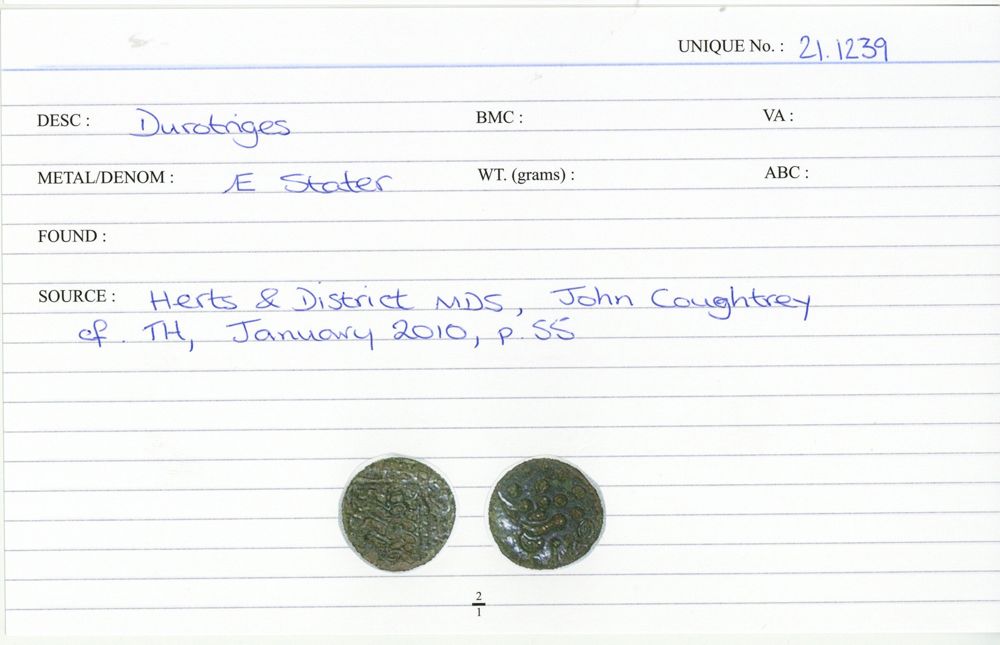 UNIQUE No. : 21.1239
DESC : Durotriges BMC : VA :
METAL/DENOM : Æ Stater WT. (grams) : ABC :
FOUND :
SOURCE : Herts & District MDS, John Coughtrey
cf. TH, January 2010, p. 55
2
1